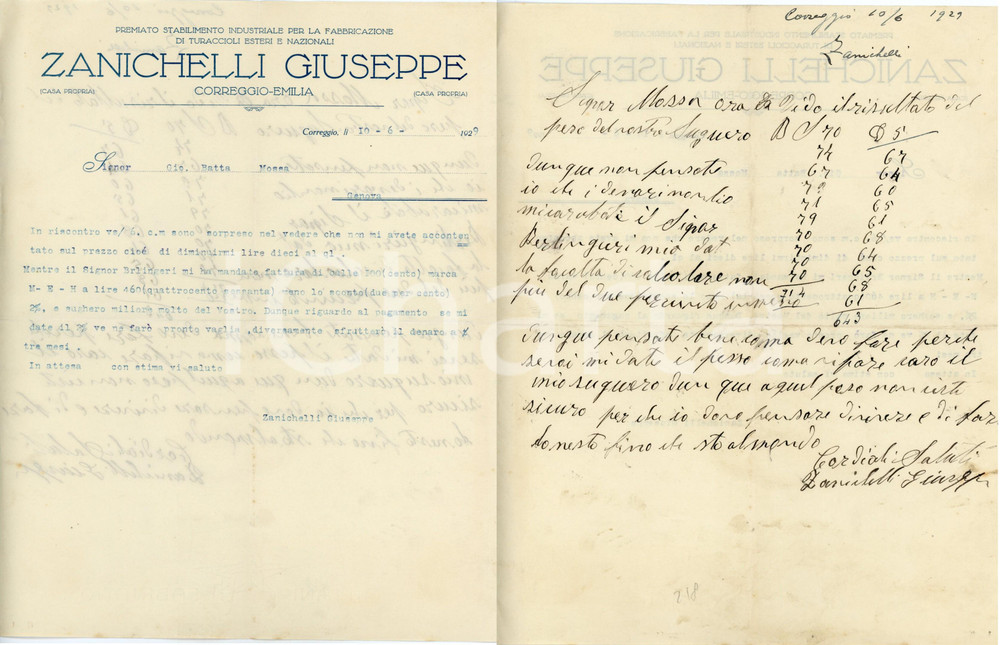 PREMIATO STABILIMENTO INDUSTRIALE PER LA FABBRICAZIONE
DI TURACCIOLI ESTERI E NAZIONALI
ZANICHELLI GIUSEPPE
(CASA PROPRIA) CORREGGIO-EMILIA (CASA PROPRIA)
Correggio, li 10-6- 1929
Signor Gio. Batta Mossa
Genova
In riscontro vs/ 6. c.m sono sorpreso nel vedere che non mi avete acconten
tato sul prezzo cioé di diminuirmi lire dieci al ql.
Mentre il Signor Erlingeri mi ha mandato fattura di balle 100(cento) marca
M- E - H a lire 460(quattrocento sessanta) meno lo sconto(due per cento)
2%, e sughero migliore molto del Vostro. Dunque riguardo al pagamento se mi
date il 2% ve ne farò pronto vaglia, diversamente sfrutterò il denaro a
tre mesi.
In attesa con stima vi saluto
Zanichelli Giuseppe
Correggio 10/6 1929
Zanichelli
Signor Mossa ora da Vido il risultato del
peso del vostro Suguero B S 70 D 5
74 67
Dunque non pensate 67 64
io che i denari non lio 79 60
mica rubati il Signor 79 61
Berlingieri mi a dat 70 68
la facoltà di calcolare non 70 65
più del due per cento 714 61
643
Dunque pensate bene come devo fare perché
se voi mi date il peso come ripare caro il
mio suguero dun que a quel peso non
sicuro per che io devo pensare di vivere e di far
lonesto fino che sto al mondo
Cordiali Saluti
Zanichelli Giusepp
218